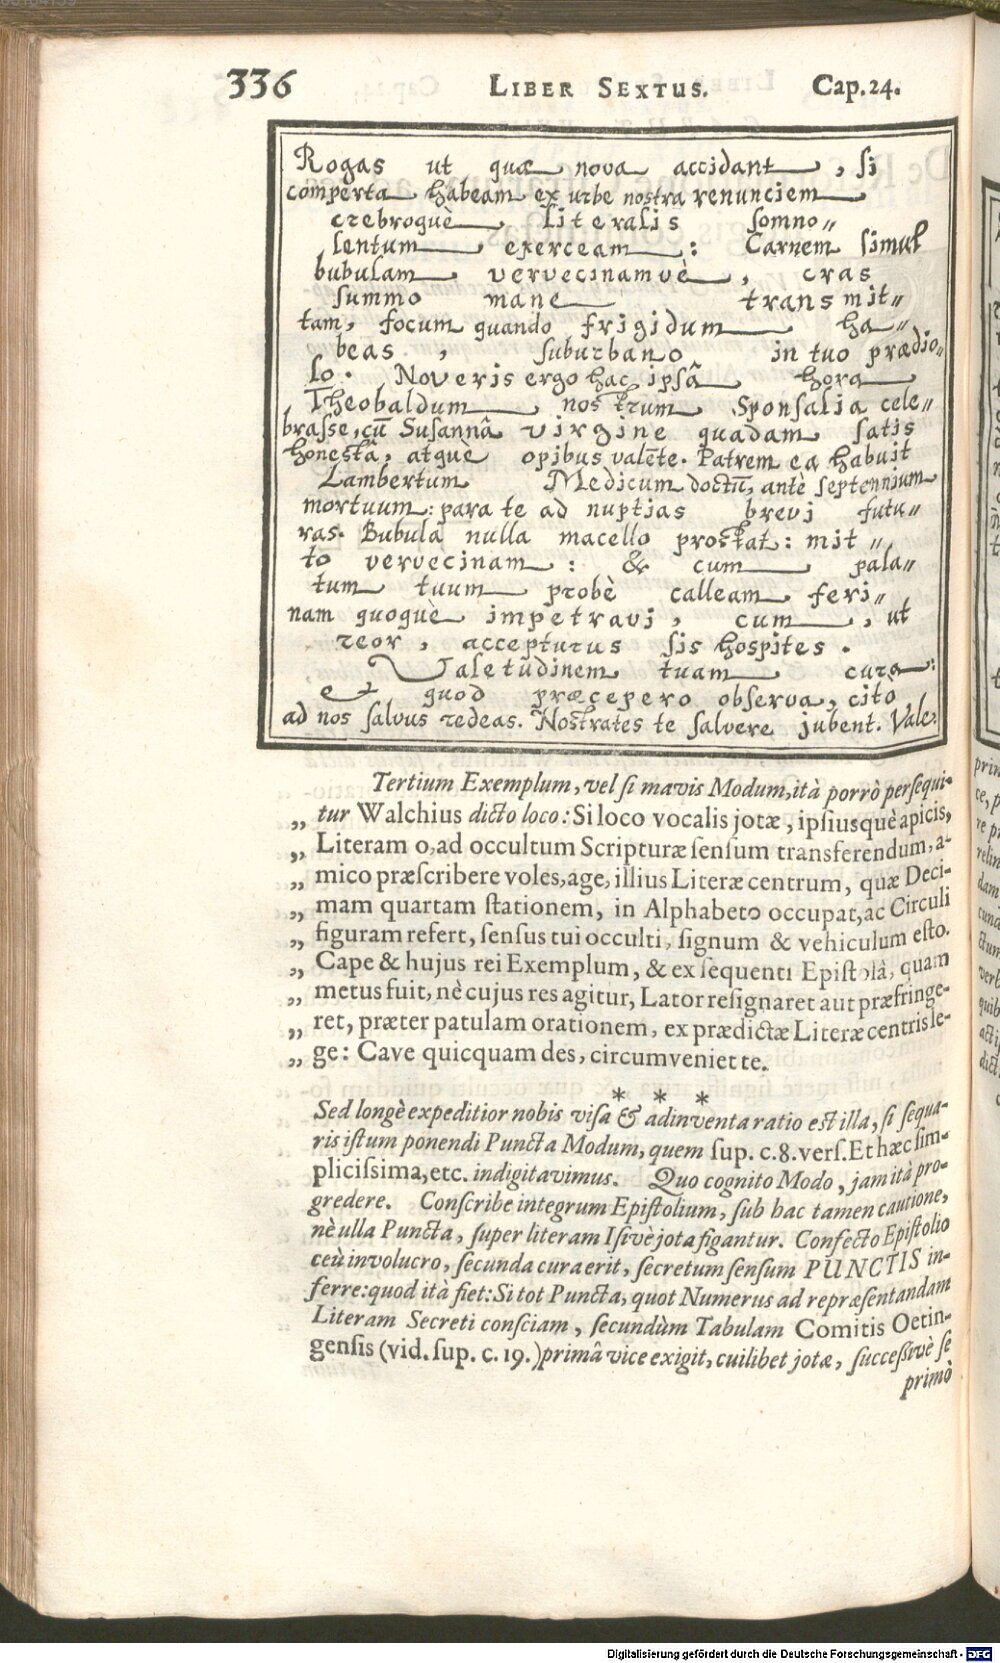 336 LIBER SEXTUS. Cap. 24.
Rogas ut quæ nova accidant, si
comperta habeam ex urbe nostra renunciem
crebroquè literalis somno„
lentum exerceam: Carnem simul
bubulam vervecinamvè, cras
summo mane transmit„
tam, focum quando frigidum ha„
beas, suburbano in tuo prædio„
lo. Noveris ergo hac ipsâ hora
Theobaldum nostrum Sponsalia cele„
brasse, cũ Susannâ virgine quadam satis
honestâ, atquè opibus valẽte. Patrem ea habuit
Lambertum Medicum doctũ, antè septennium
mortuum: para te ad nuptias brevi futu„
ras. Bubula nulla macello prostat: mit„
to vervecinam: & cum pala„
tum tuum probè calleam feri„
nam quoquè impetravi, cum, ut
reor, accepturus sis hospites.
Valetudinem tuam cura:
& quod præcepero observa, cito
ad nos salvus redeas. Nostrates te salvere jubent. Vale.
Tertium Exemplum, vel ſi mavis Modum, ità porrò perſequi-
„ tur Walchius dicto loco: Si loco vocalis jotæ, ipſiusquè apicis,
„ Literam o, ad occultum Scripturæ ſenſum transferendum, a-
„ mico præſcribere voles, age, illius Literæ centrum, quæ Deci-
„ mam quartam ſtationem, in Alphabeto occupat, ac Circuli
„ figuram refert, ſenſus tui occulti, ſignum & vehiculum eſto.
„ Cape & hujus rei Exemplum, & ex ſequenti Epiſtolâ, quam
„ metus fuit, nè cujus res agitur, Lator reſignaret aut præfringe-
„ ret, præter patulam orationem, ex prædictæ Literæ centris le-
„ ge: Cave quicquam des, circumveniet te.
* * *
Sed longè expeditior nobis viſa & adinventa ratio est illa, ſi ſequa-
ris iſtum ponendi Puncta Modum, quem ſup. c. 8. verſ. Et hæc ſim-
pliciſsima, etc. indigitavimus. Quo cognito Modo, jam ità pro-
gredere. Conſcribe integrum Epiſtolium, ſub hac tamen cautione,
nè ulla Puncta, ſuper literam I ſivè jota figantur. Confecto Epiſtolio
ceù involucro, ſecunda cura erit, ſecretum ſenſum PUNCTIS in-
ferre: quod ità fiet: Si tot Puncta, quot Numerus ad repræſentandam
Literam Secreti conſciam, ſecundùm Tabulam Comitis Oetin-
genſis (vid. ſup. c. 19.) primâ vice exigit, cuilibet jotæ, ſucceſſivè ſe
primò
Digitalisierung gefördert durch die Deutsche Forschungsgemeinschaft - DFG